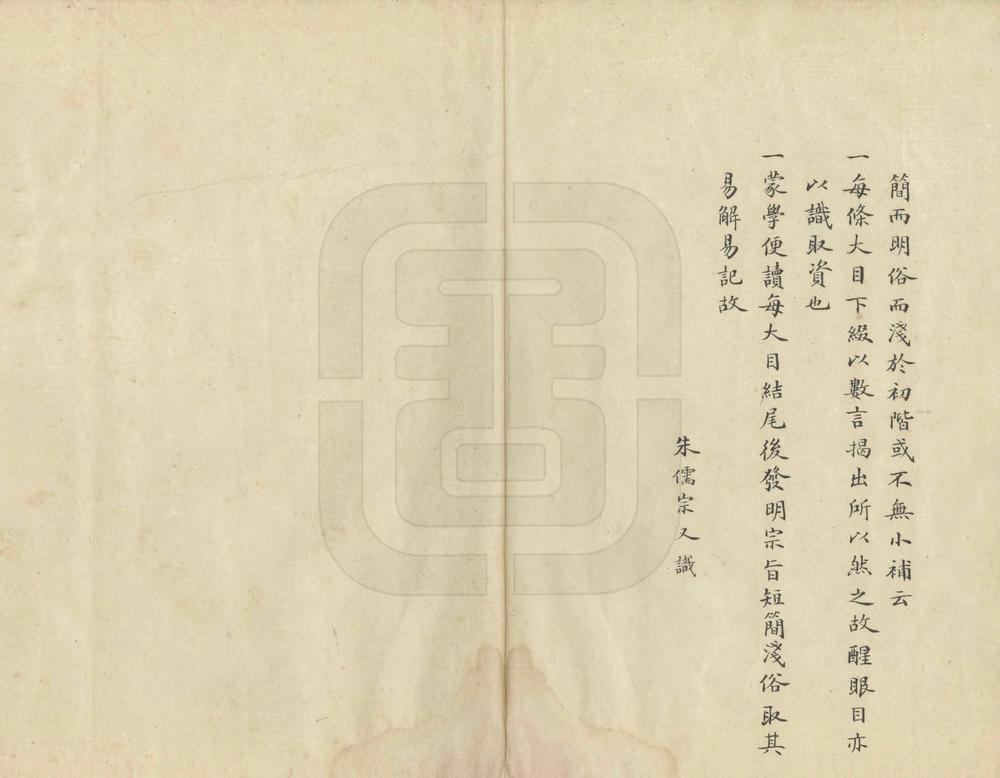 簡而明俗而淺於初階或不無小補云
一每條大目下綴以數言揭出所以然之故醒眼目亦
以識取資也
一蒙學便讀每大目結尾後發明宗旨短簡淺俗取其
易解易記故
朱儒宗又識